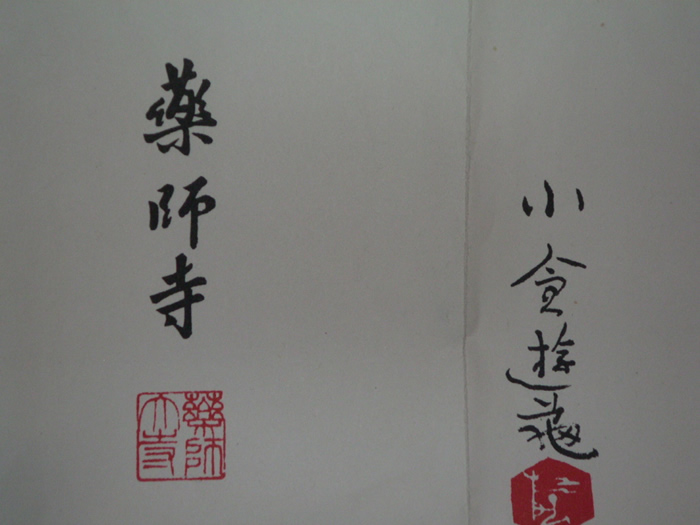 小倉遊亀
藥師寺
藥師
大寺